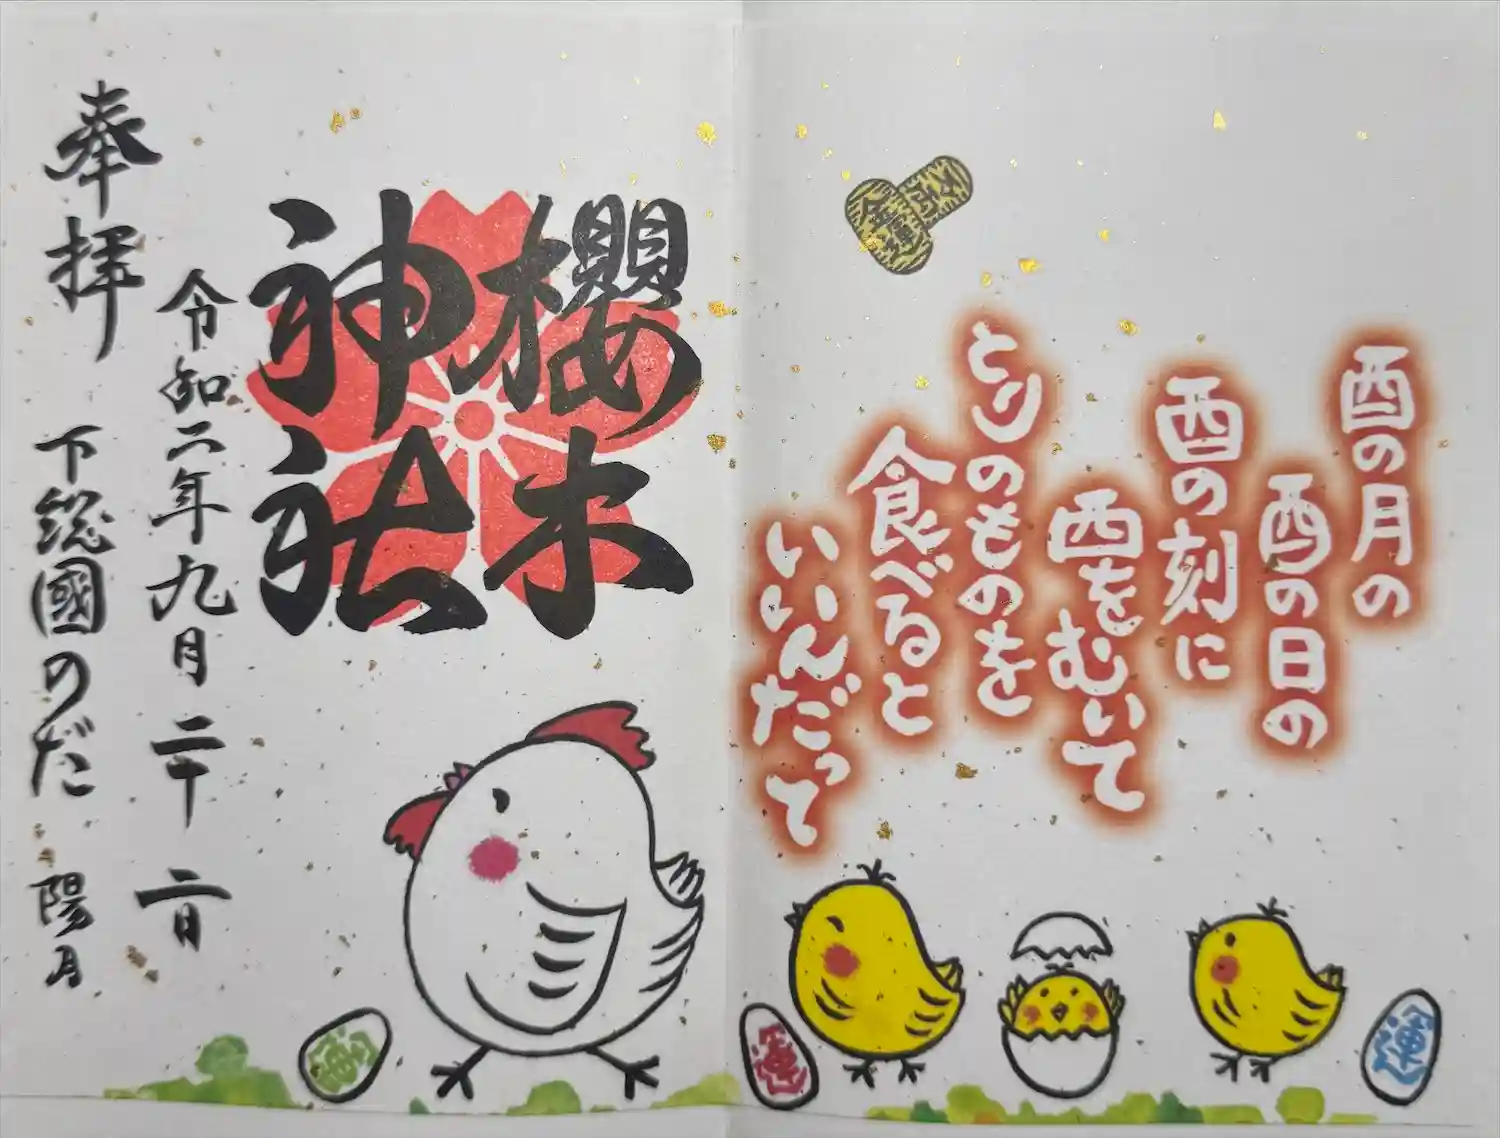 酉の月の
酉の日の
酉の刻に
西をむいて
とりのものを
食べると
いいんだって
金運
櫻木
神社
令和二年九月二十二日
奉拝
下総國のだ 陽月
運
運
運